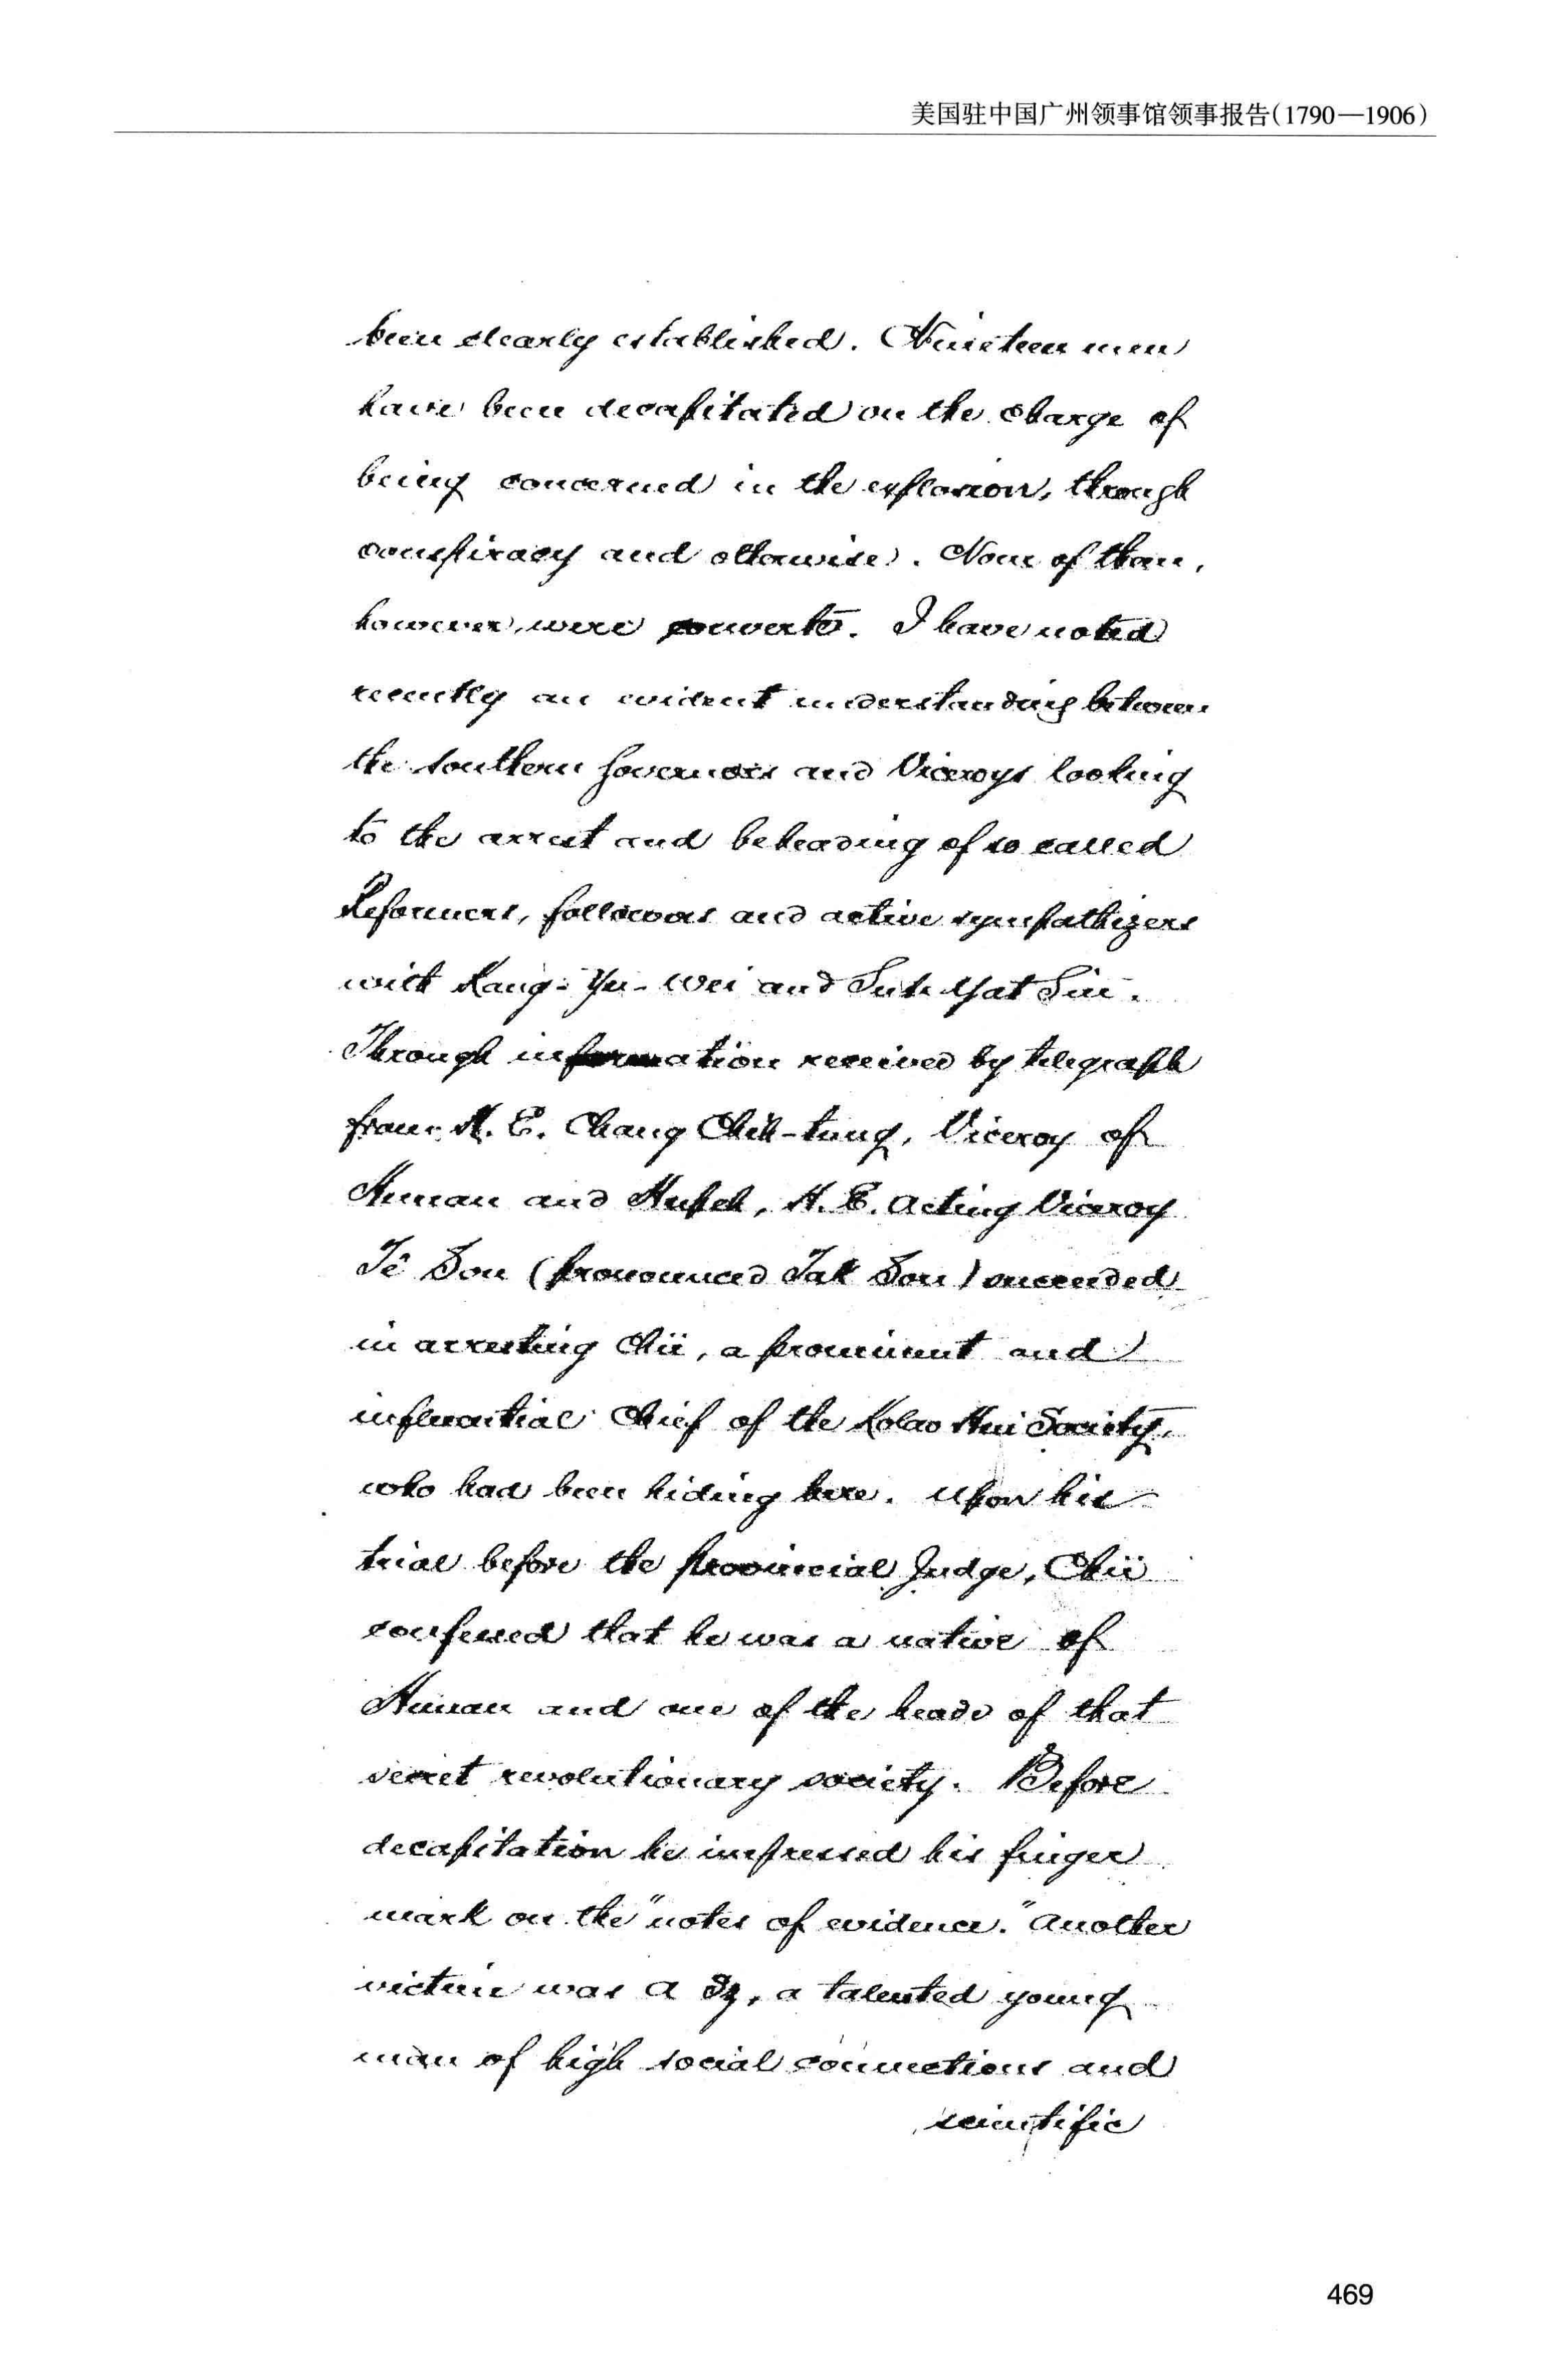 美国驻中国广州领事馆领事报告(1790—1906)
been clearly established. Nineteen men
have been decapitated on the charge of
being concerned in the explosion, through
conspiracy and otherwise. None of them,
however, were converts. I have noted
recently an evident understanding between
the southern Governors and Viceroys looking
to the arrest and beheading of so called
Reformers, followers and active sympathizers
with Kang-Yu-Wei and Sun Yat Sin.
Through information received by telegraph
from H. E. Chang Chih-tung, Viceroy of
Hunan and Hupeh, H. E. Acting Viceroy
Tê Sou (pronounced Tak Sou) succeeded
in arresting Chü, a prominent and
influential Chief of the Kolao Hui Society,
who had been hiding here. Upon his
trial before the provincial Judge, Chü
confessed that he was a native of
Hunan and one of the heads of that
secret revolutionary society. Before
decapitation he impressed his finger
mark on the "notes of evidence." Another
victim was A Sz, a talented young
man of high social connections and
scientific
469